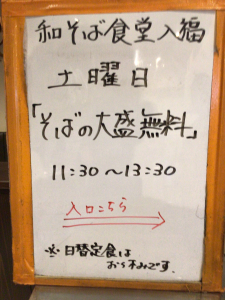 和そば食堂入福
土曜日
「そばの大盛無料」
11:30～13:30
入口こちら
※日替定食は
お休みです.